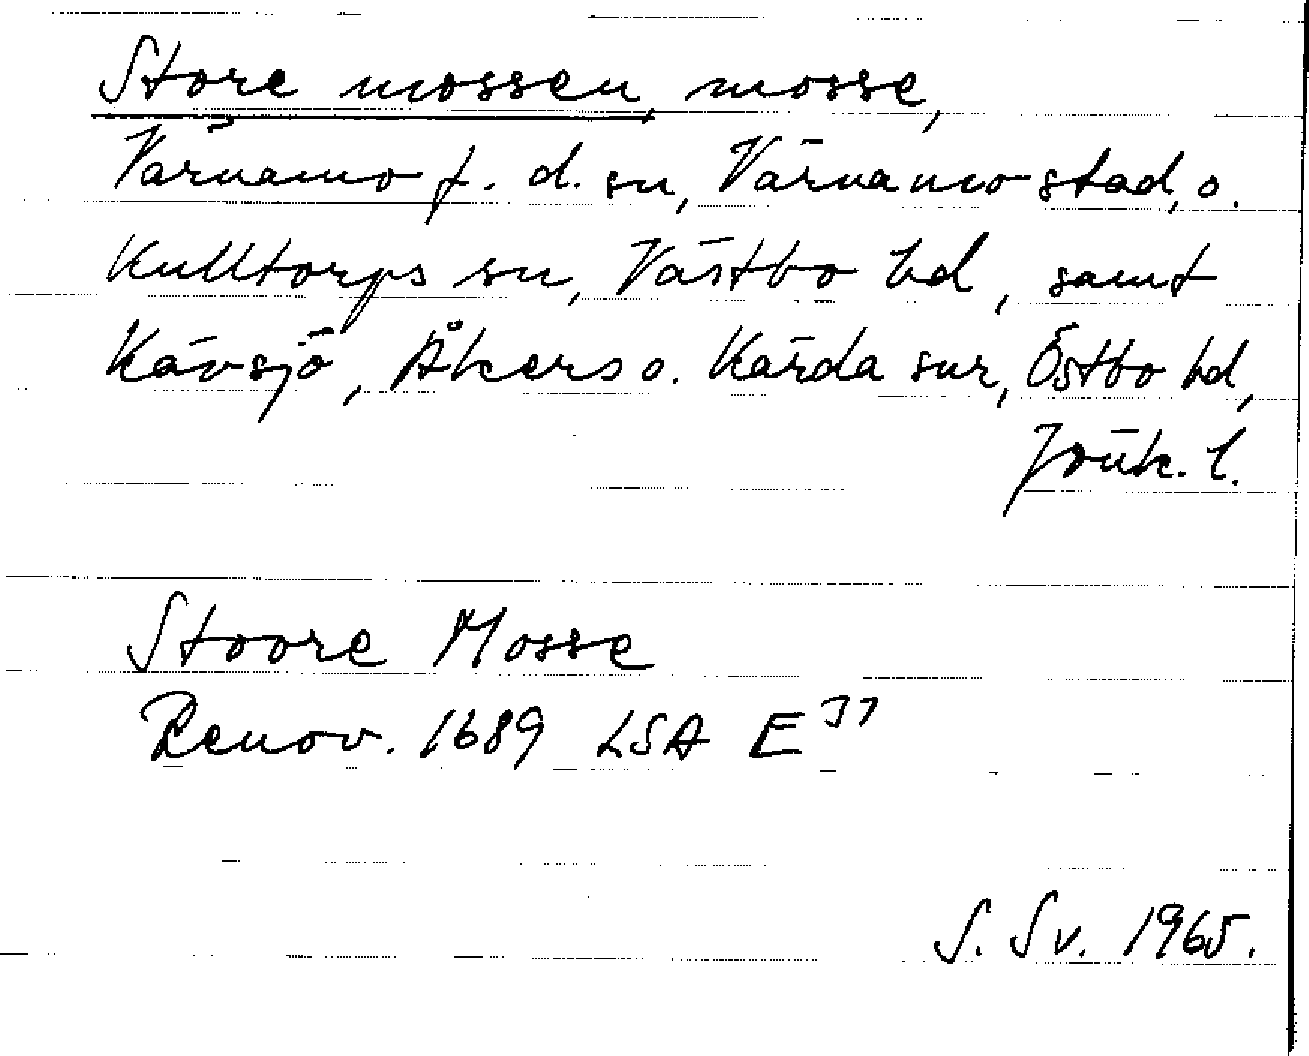 Store mossen, mosse,
Värnamo f. d. sn, Värnamo stad, o.
Kulltorps sn, Västbo hd, samt
Kävsjö, Åkers o. Kärda snr, Östbo hd,
Jönk. l.
Stoore Mosse
Renov. 1689 LSA E³⁷
S. Sv. 1965.